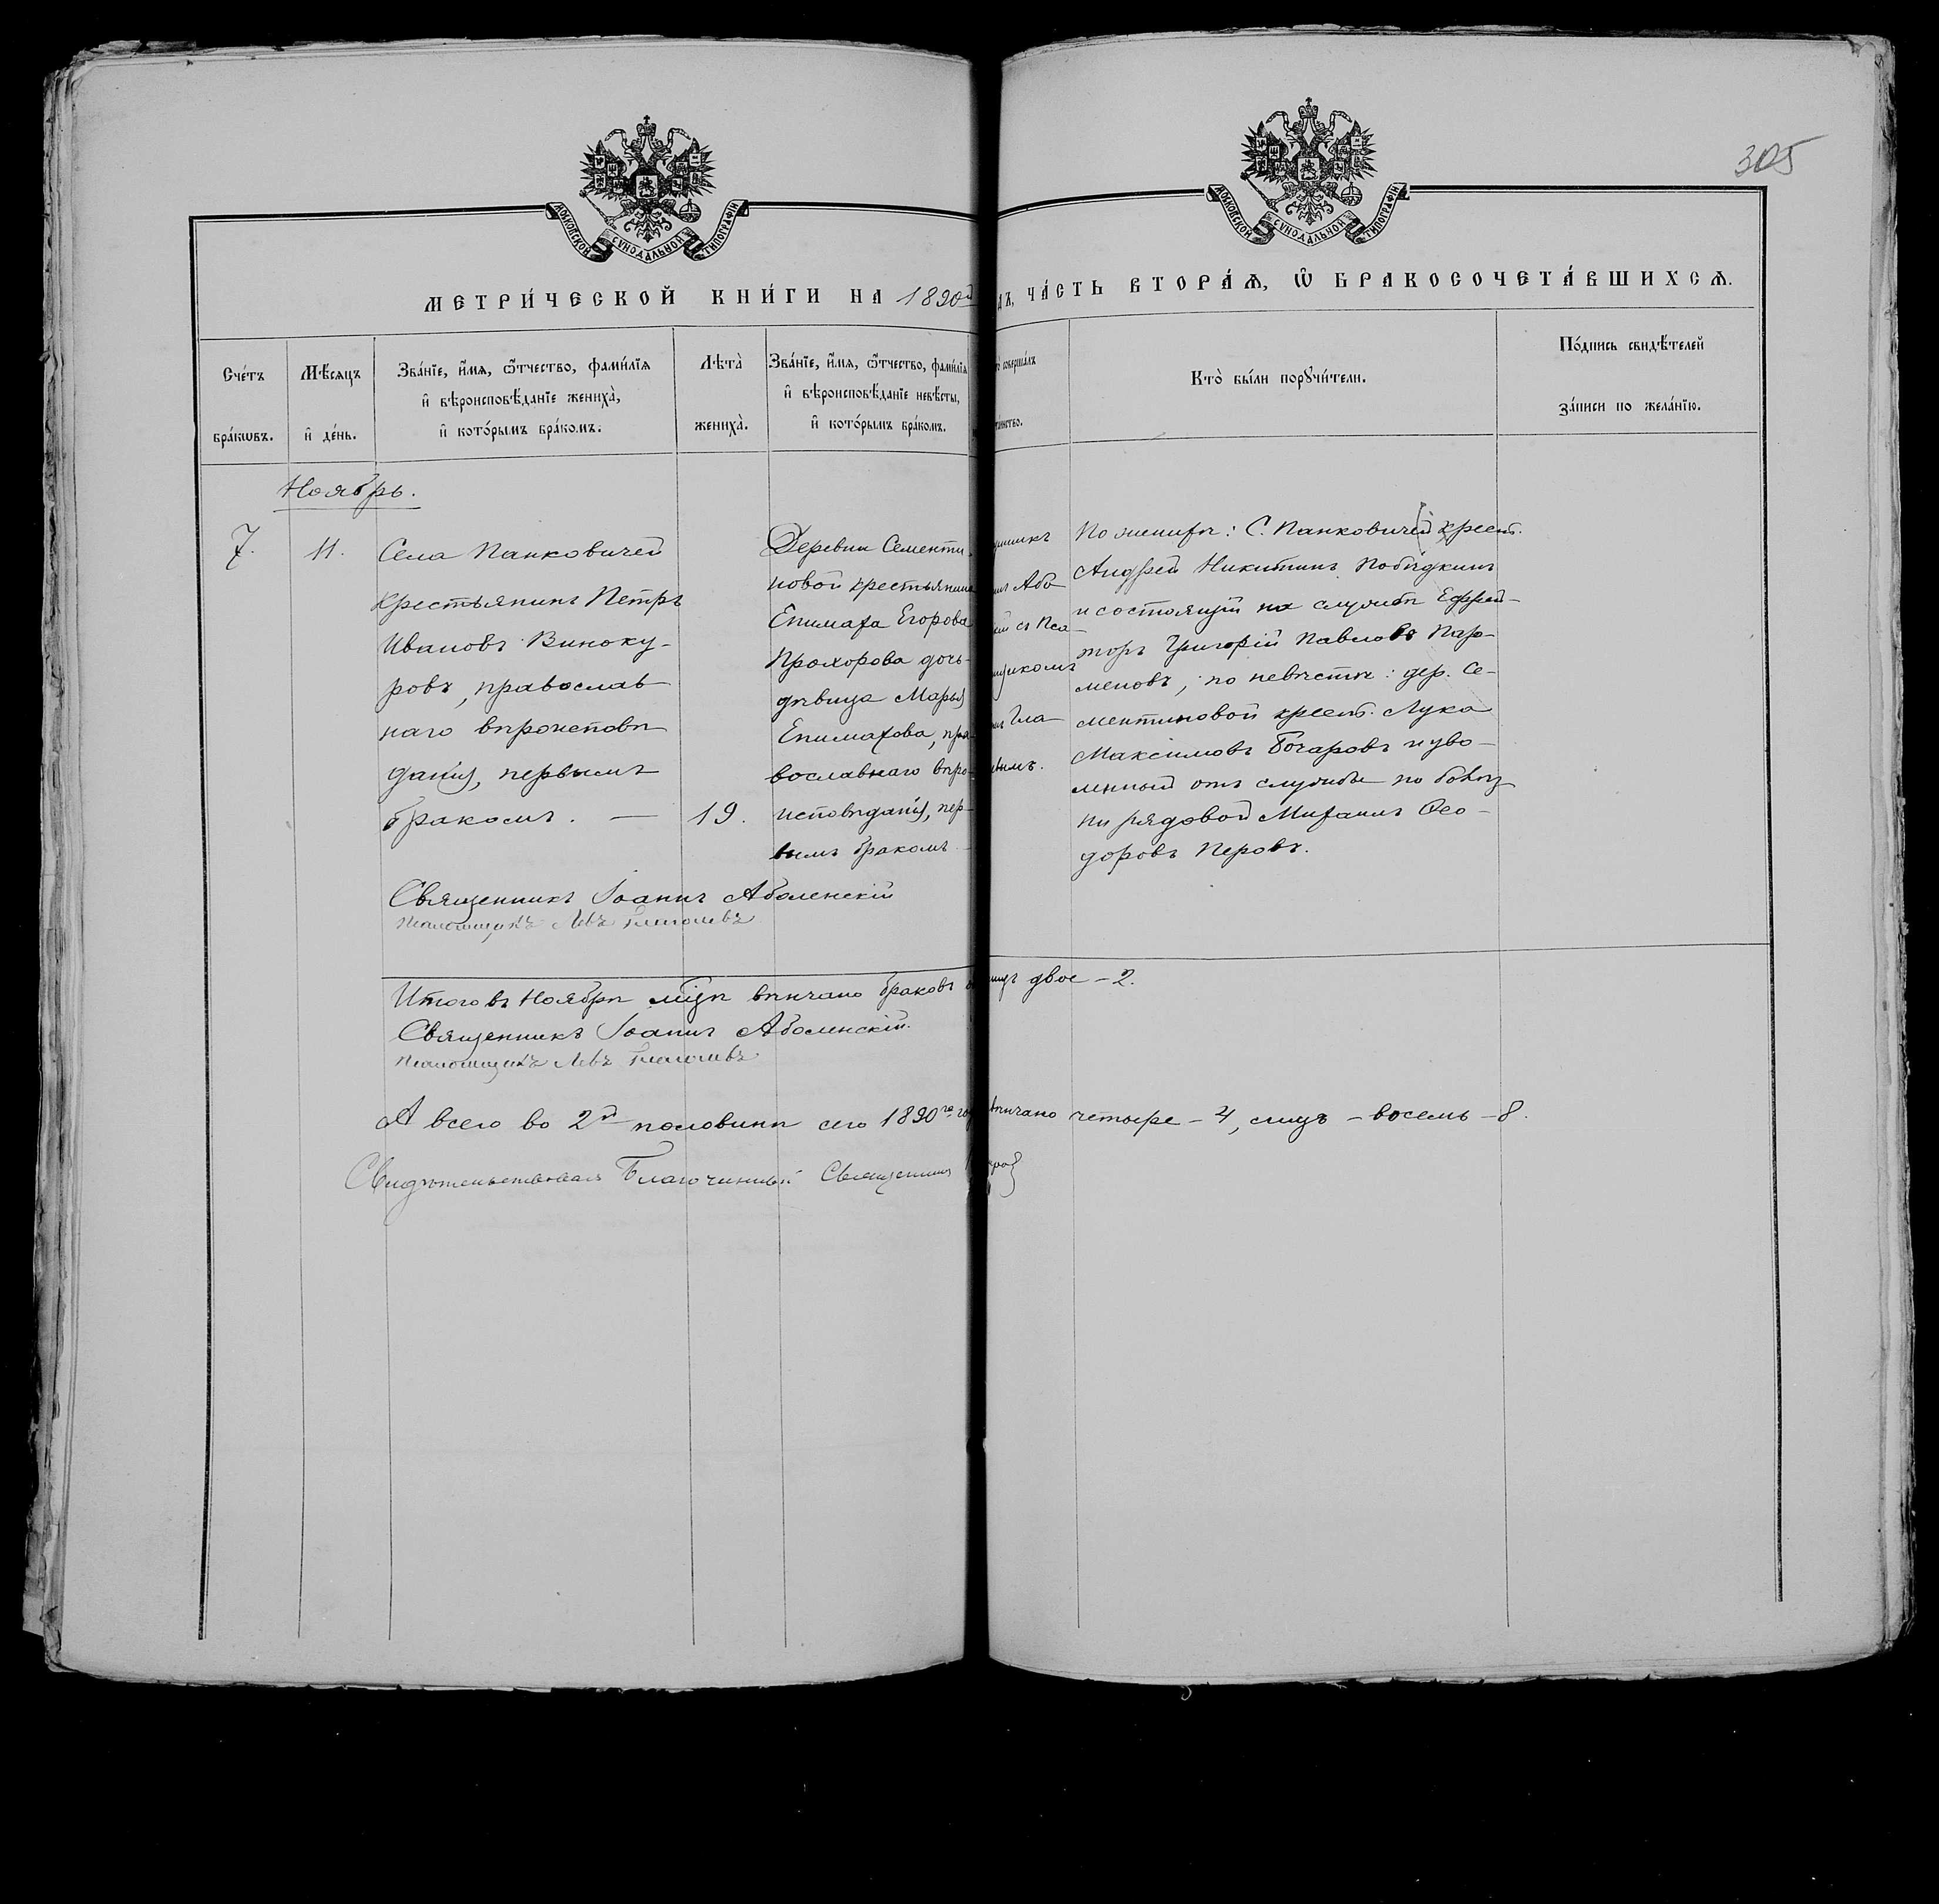 305
МОСКОВСКОЙ СѴНОДАЛЬНОЙ ТИПОГРАФІИ
МОСКОВСКОЙ СѴНОДАЛЬНОЙ ТИПОГРАФІИ
МЕТРИ́ЧЕСКОЙ КНИ́ГИ НА 1890й
ДЪ, ЧА́СТЬ ВТОРА́Ѧ, Ѿ БРАКОСОЧЕТА́ВШИХСѦ.
Сче́тъ бра́кѡвъ.
Мѣ́сѧцъ и҆ де́нь.
Зва́нїе, и҆́мѧ, ѻ҆́тчество, фами́лїѧ
и҆ вѣроисповѣ́данїе жениха̀,
и҆ кото́рымъ бра́комъ.
Лѣ́та̀ жениха̀.
Зва́нїе, и҆́мѧ, ѻ҆́тчество, фами́лїѧ
и҆ вѣроисповѣ́данїе невѣ́сты,
и҆ кото́рымъ бра́комъ.
соверша́лъ
та́инство.
Кто̀ бы́ли порꙋчи́тели.
По́дпись свидѣ́телей
за́писи по жела́нїю.
Ноябрь.
7.
11.
Села Панковичей
крестьянинъ Петръ
Ивановъ Виноку-
ровъ, православ
наго вѣроисповѣ
данія, первымъ
бракомъ. —
19.
Деревни Сементи-
новой крестьянина
Епимаха Егорова
Прохорова дочь
дѣвица Марья
Епимахова, пра-
вославнаго вѣро-
исповѣданія, пер-
вымъ бракомъ –
щенникъ
Або
й съ Пса-
щикомъ
Гла
вымъ.
По женихѣ: С. Панковичей крест.
Андрей Никитинъ Побѣдкинъ
и состоящій на службѣ Ефрей-
торъ Григорій Павловъ Пар-
меновъ, по невѣстѣ: дер. Се-
ментиновой крест. Лука
Максимовъ Бочаровъ и уво-
ленный отъ службы по болѣз
ни рядовой Михаилъ Ѳео-
доровъ Перовъ.
Священникъ Іоаннъ Аболенскій
Псаломщикъ Левъ Глаголевъ
Итого въ Ноябрѣ мцѣ вѣнчано браковъ лицъ двое – 2.
Священникъ Іоаннъ Аболенскій.
Псаломщикъ Левъ Глаголевъ
А всего во 2й половинѣ сего 1890го года вѣнчано четыре – 4, лицъ – восемь – 8.
Свидѣтельствовалъ Благочинный Священникъ